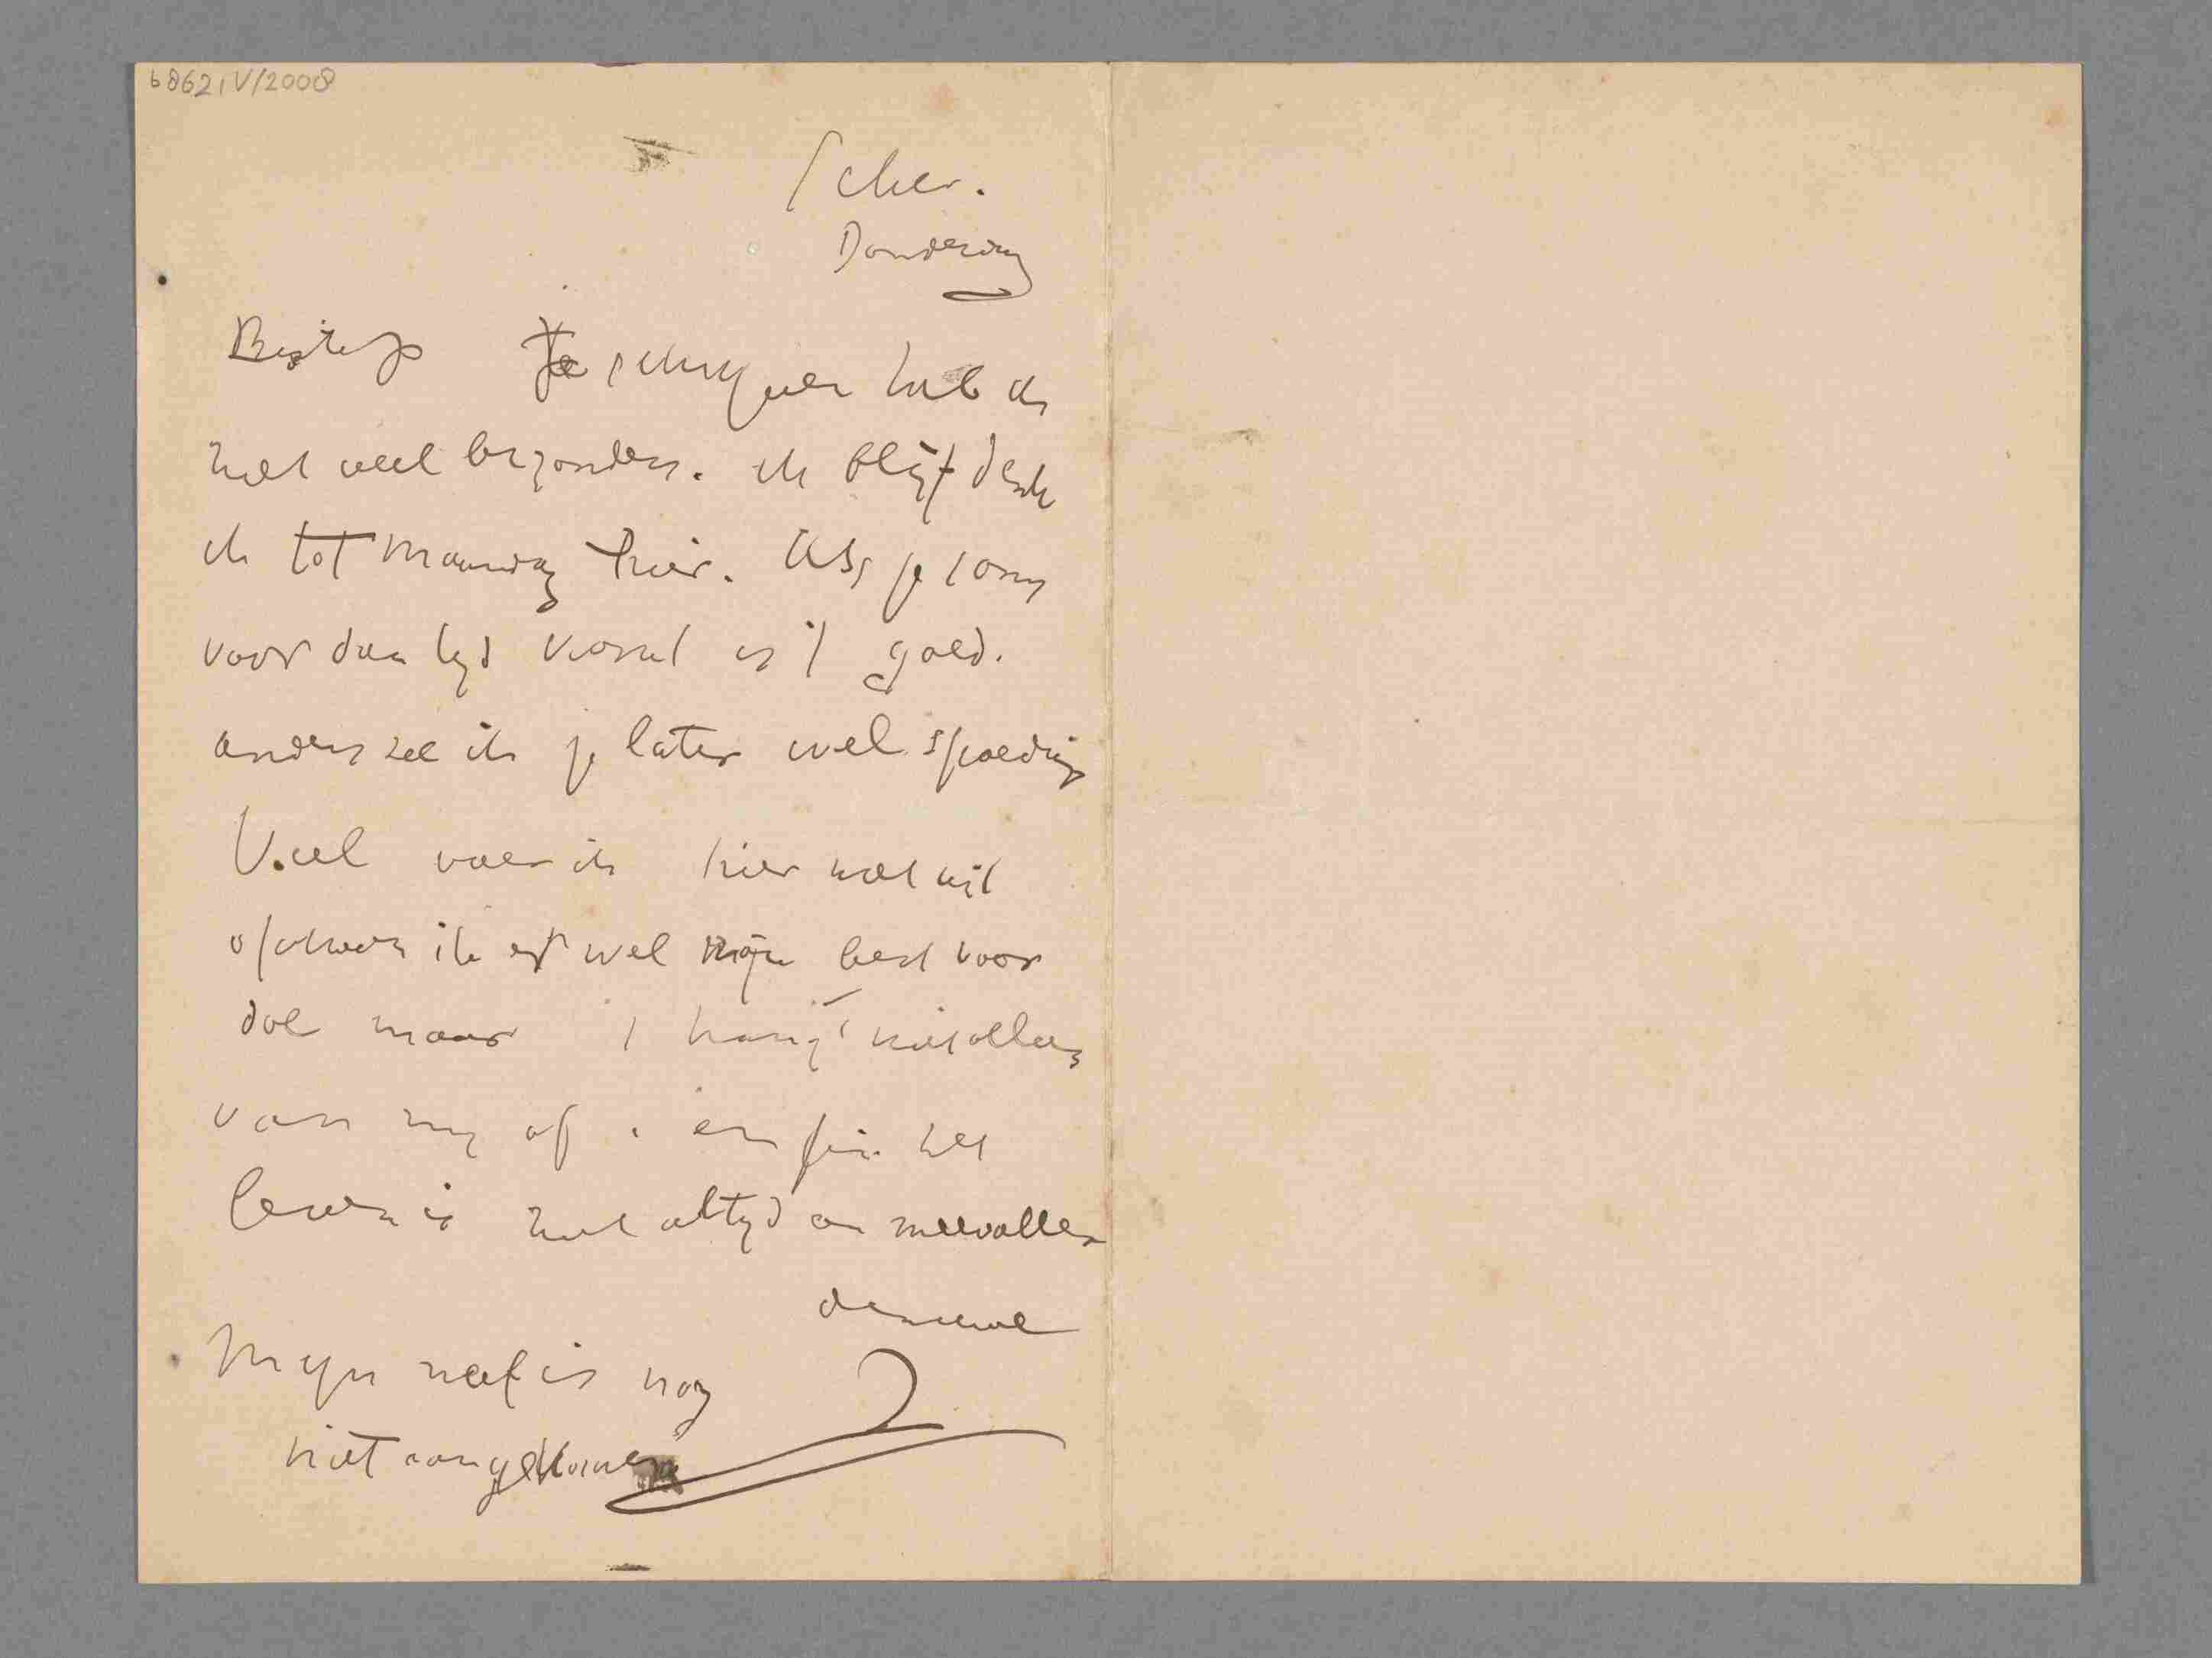 b8621V/2008
Schev.
Donderdag
Beste Te schrijven heb ik
niet veel bizonders. ik blijf denk
ik tot maandag hier. Als je soms
voor dan tijd vindt is 't goed.
anders zie ik je later wel spoedig
Veel voer ik hier niet uit
ofschoon ik er wel mijn best voor
doe maar 't hangt niet alleen
van mij af. enfin het
leven is niet altijd een meevaller
Mijn neef is nog
niet aangekomen